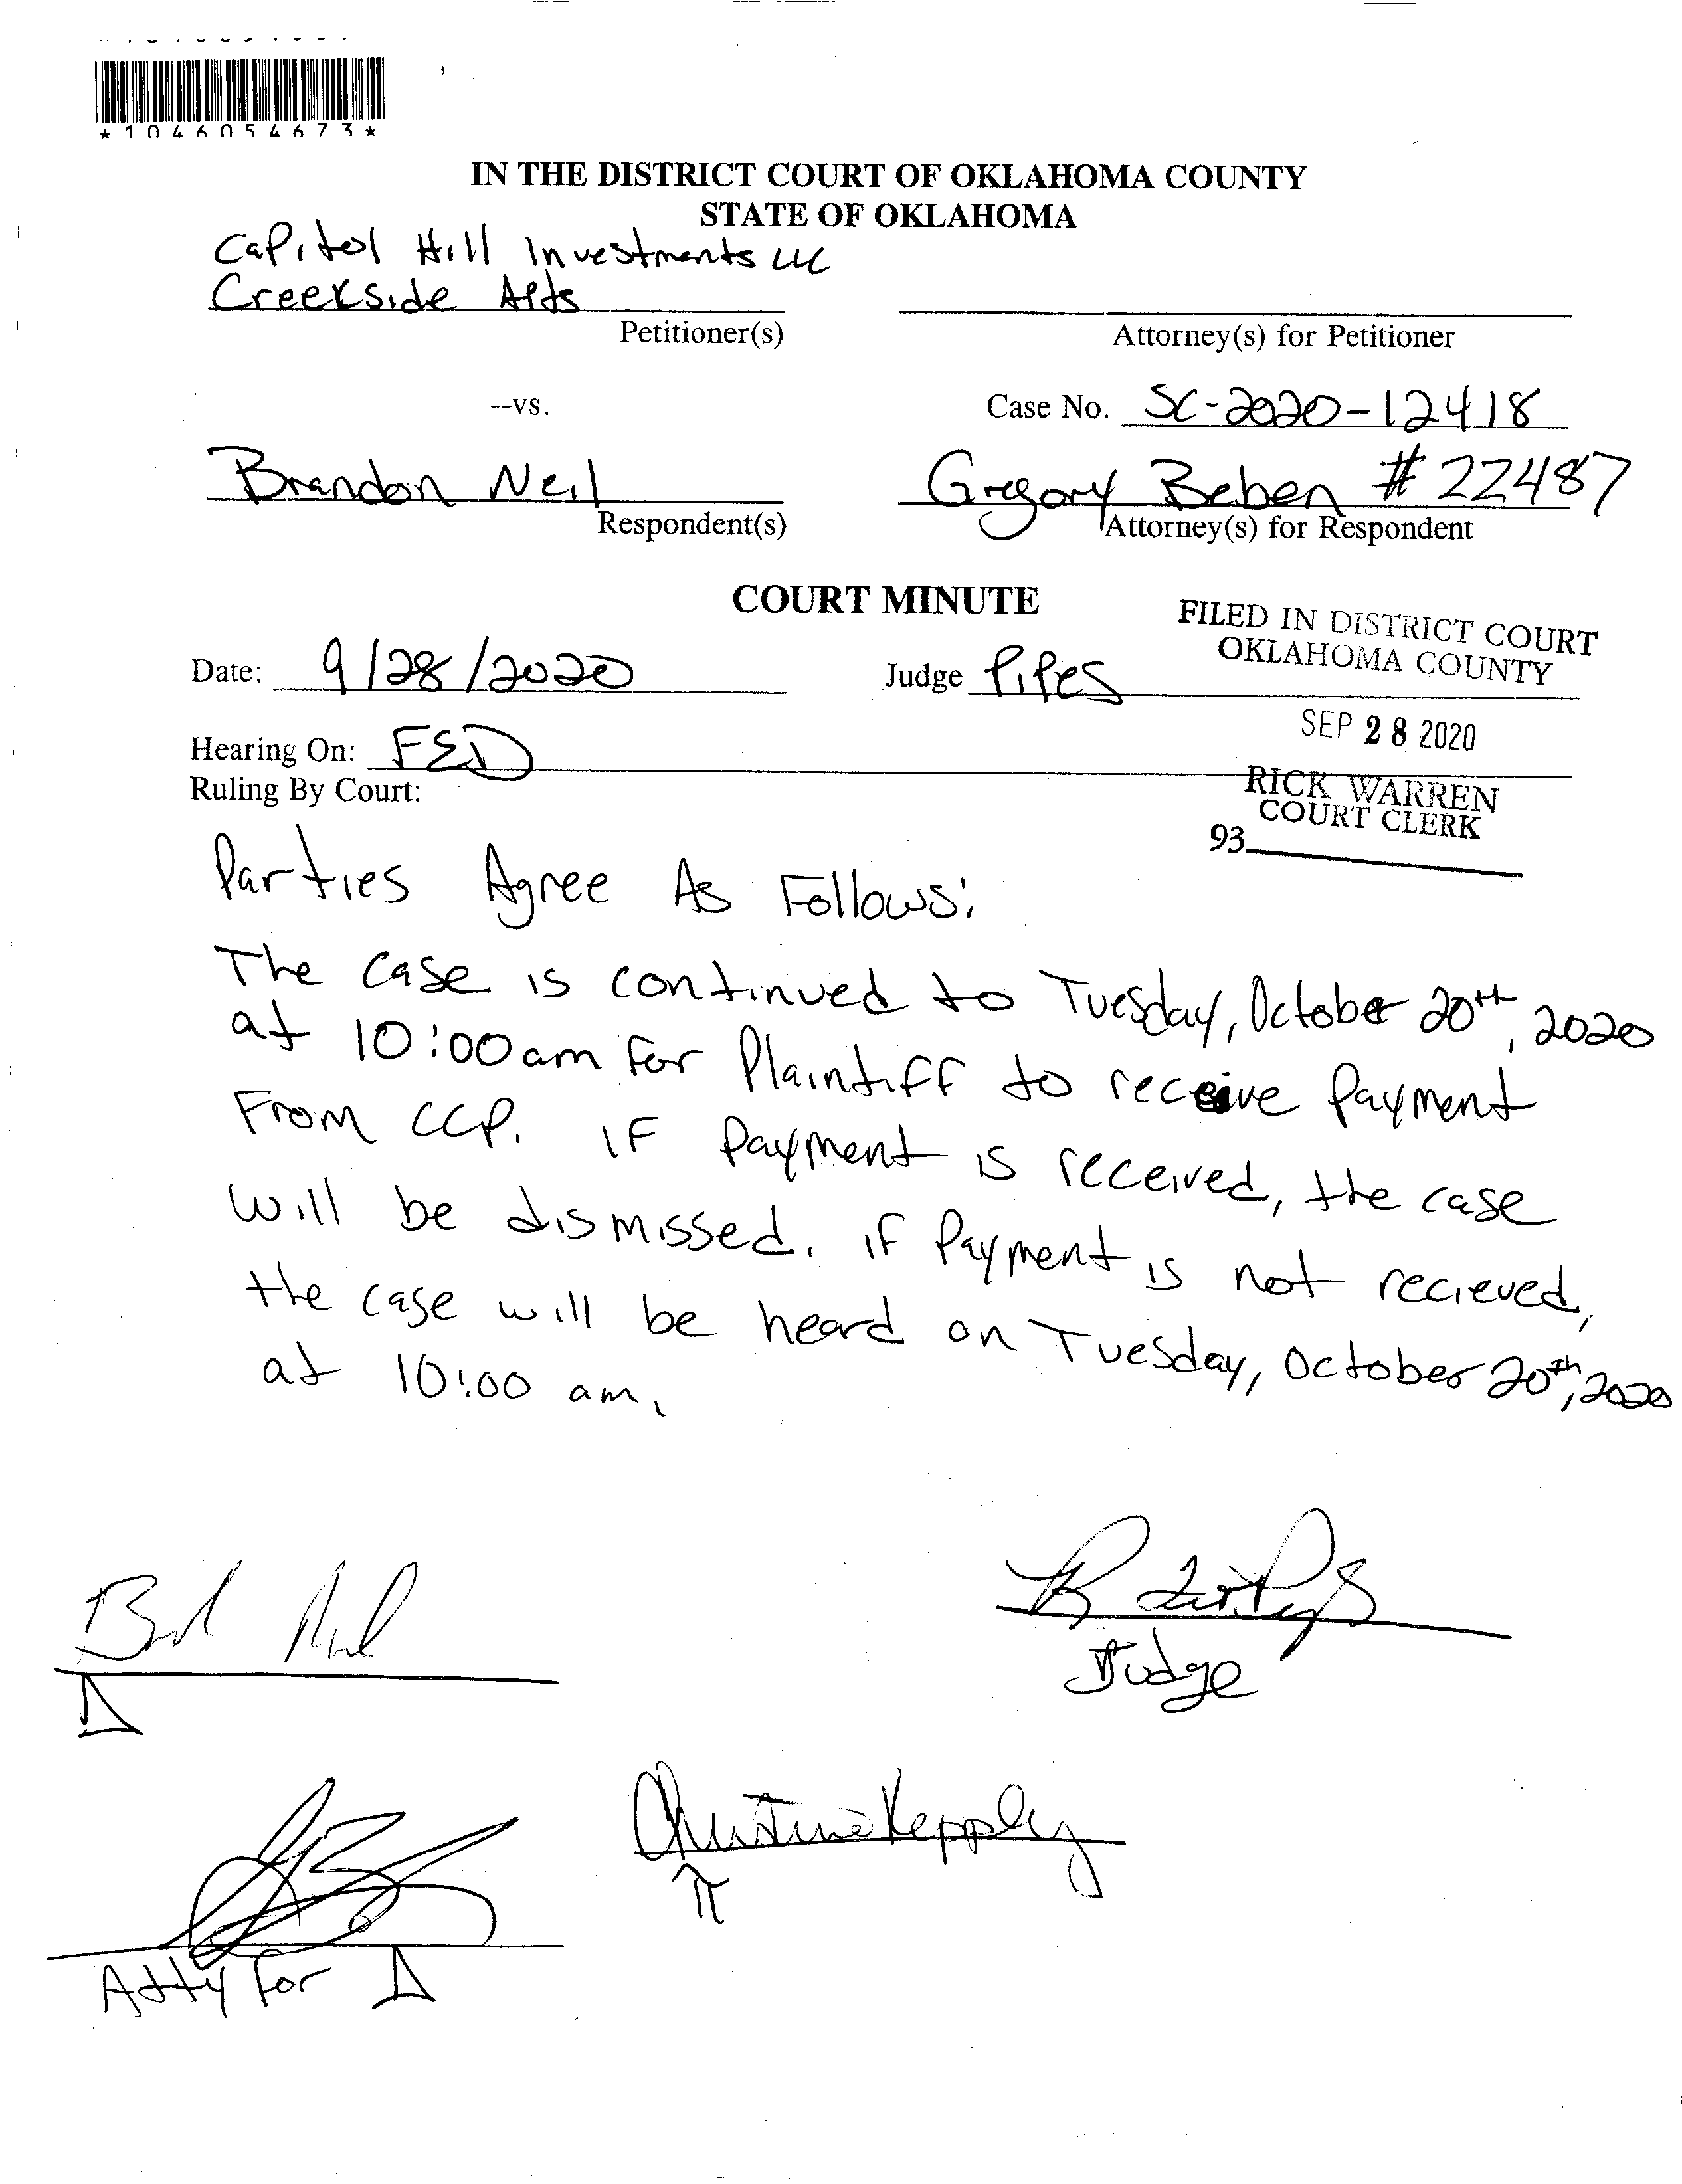 *1046054673*
IN THE DISTRICT COURT OF OKLAHOMA COUNTY
STATE OF OKLAHOMA
Capitol Hill Investments LLC
Creekside Apts
Petitioner(s)
Attorney(s) for Petitioner
--vs.
Case No. SC-2020-12418
Brandon Neil
Respondent(s)
Gregory Beben # 22487
Attorney(s) for Respondent
COURT MINUTE
FILED IN DISTRICT COURT
OKLAHOMA COUNTY
Date: 9/28/2020
Judge Pipes
SEP 28 2020
Hearing On: FED
RICK WARREN
COURT CLERK
Ruling By Court:
93
Parties Agree As Follows:
The case is continued to Tuesday, October 20th, 2020
at 10:00am for Plaintiff to receive Payment
From CCP. IF Payment is received, the case
will be dismissed. if Payment is not recieved,
the case will be heard on Tuesday, October 20th, 2020
at 10:00 am.
Judge
Δ
Christine Kepply
π
Atty for Δ